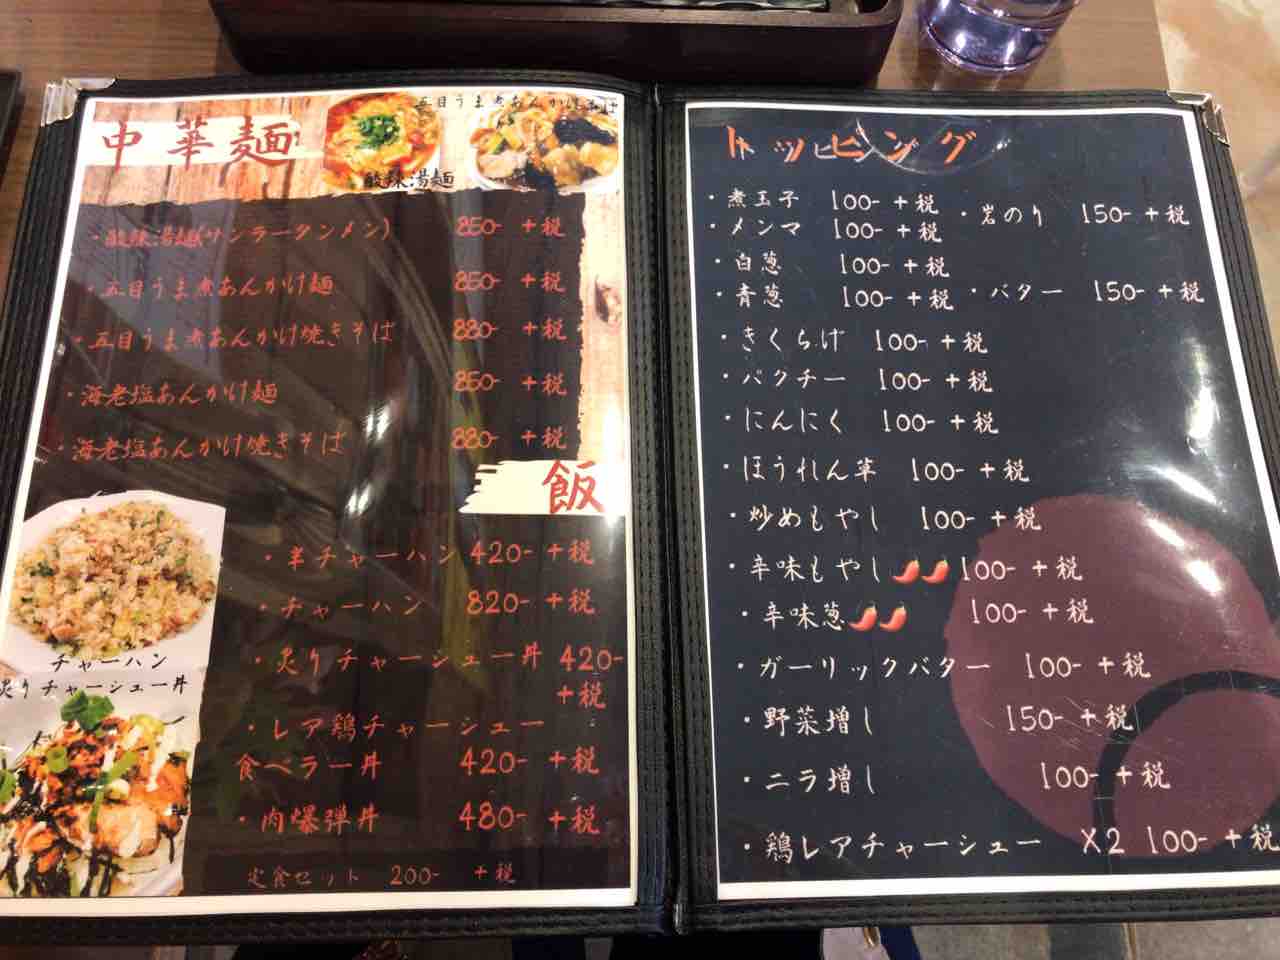 中華麺
五目うま煮あんかけそば
酸辣湯麺
・酸辣湯麺(サンラータンメン) 850- +税
・五目うま煮あんかけ麺 850- +税
・五目うま煮あんかけ焼きそば 880- +税
・海老塩あんかけ麺 850- +税
・海老塩あんかけ焼きそば 880- +税
飯
・半チャーハン 420- +税
・チャーハン 820- +税
・炙りチャーシュー丼 420-
+税
・レア鶏チャーシュー
食べラー丼 420- +税
・肉爆弾丼 480- +税
定食セット 200- +税
チャーハン
炙りチャーシュー丼
トッピング
・煮玉子 100- +税
・岩のり 150- +税
・メンマ 100- +税
・白葱 100- +税
・青葱 100- +税
・バター 150- +税
・きくらげ 100- +税
・パクチー 100- +税
・にんにく 100- +税
・ほうれん草 100- +税
・炒めもやし 100- +税
・辛味もやし🌶🌶 100- +税
・辛味葱🌶🌶 100- +税
・ガーリックバター 100- +税
・野菜増し 150- +税
・ニラ増し 100- +税
・鶏レアチャーシュー X2 100- +税